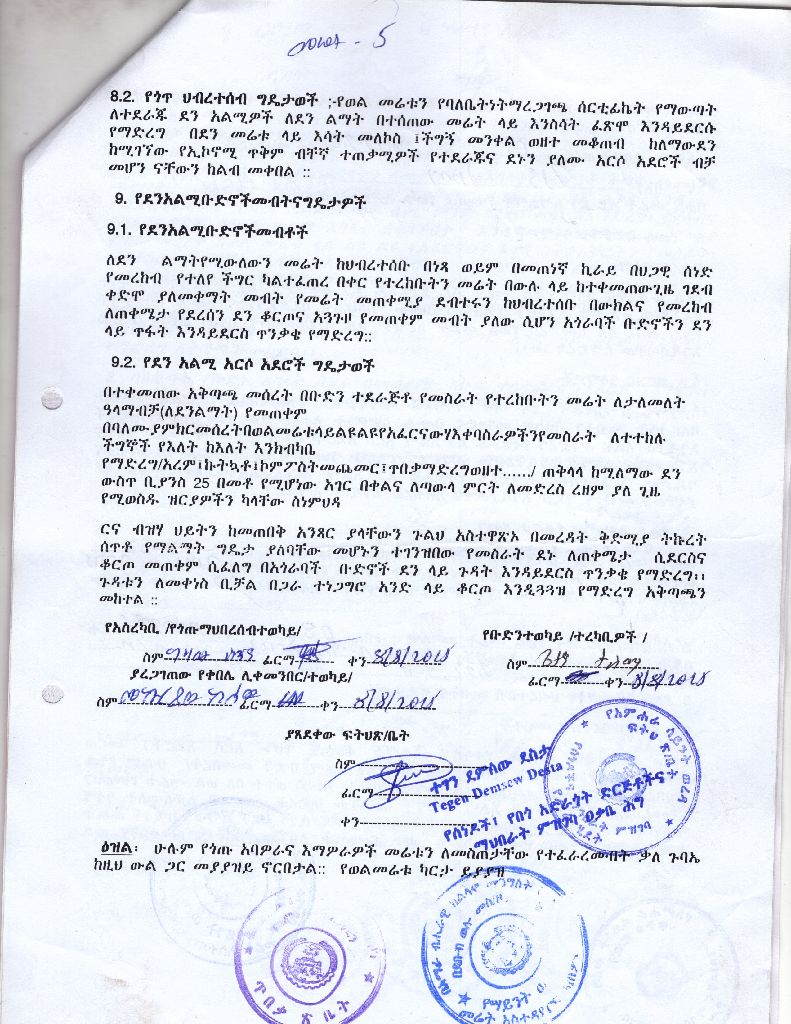 8.2. የጎጥ ህብረተሰብ ግዴታወች ;-የወል መሬቱን የባለቤትነትማረጋገጫ ሰርቲፊኬት የማውጣት
ለተደራጁ ደን አልሚዎች ለደን ልማት በተሰጠው መሬት ላይ እንስሳት ፈጽሞ እንዳይደርሱ
የማድረግ በደን መሬቱ ላይ እሳት መለኮስ ፤ችግኝ መንቀል ወዘተ መቆጠብ ከለማውደን
ከሚገኘው የኢኮኖሚ ጥቅም ብቸኛ ተጠቃሚዎች የተደራጁና ደኑን ያለሙ አርሶ አደሮች ብቻ
መሆን ናቸውን ከልብ መቀበል ፡፡
9. የደንአልሚቡድኖችመብትናግዴታዎች
9.1. የደንአልሚቡድኖችመብቶች
ለደን ልማትየሚውለውን መሬት ከህብረተሰቡ በነጻ ወይም በመጠነኛ ኪራይ በህጋዊ ሰነድ
የመረከብ የተለየ ችግር ካልተፈጠረ በቀር የተረከቡትን መሬት በውሉ ላይ ከተቀመጠውጊዜ ገደብ
ቀድሞ ያለመቀማት መብት የመሬት መጠቀሚያ ደብተሩን ከህብረተሰቡ በውክልና የመረከብ
ለጠቀሜታ የደረሰን ደን ቆርጦና አጓጉዞ የመጠቀም መብት ያለው ሲሆን አጎራባች ቡድኖችን ደን
ላይ ጥፋት እንዳይደርስ ጥንቃቄ የማድረግ፡፡
9.2. የደን አልሚ አርሶ አደሮች ግዴታወች
በተቀመጠው አቅጣጫ መሰረት በቡድን ተደራጅቶ የመስራት የተረከቡትን መሬት ለታለመለት
ዓላማብቻ(ለደንልማት) የመጠቀም
በባለሙያምክርመሰረትበወልመሬቱላይልዩልዩየአፈርናውሃእቀባስራዎችንየመስራት ለተተከሉ
ችግኞች የእለት ከእለት እንክብካቤ
የማድረግ/አረም፤ኩትኳቶ፤ኮምፖስትመጨመር፤ጥበቃማድረግወዘተ....../ ጠቅላላ ከሚለማው ደን
ውስጥ ቢያንስ 25 በመቶ የሚሆነው አገር በቀልና ለጣውላ ምርት ለመድረስ ረዘም ያለ ጊዜ
የሚወስዱ ዝርያዎችን ካላቸው ስነምህዳ
ርና ብዝሃ ህይትን ከመጠበቅ አንጻር ያላቸውን ጉልህ አስተዋጽኦ በመረዳት ቅድሚያ ትኩረት
ሰጥቶ የማልማት ግዴታ ያለባቸው መሆኑን ተገንዝበው የመስራት ደኑ ለጠቀሜታ ሲደርስና
ቆርጦ መጠቀም ሲፈለግ በአጎራባች ቡድኖች ደን ላይ ጉዳት እንዳይደርስ ጥንቃቄ የማድረግ፡፡
ጉዳቱን ለመቀነስ ቢቻል በጋራ ተነጋግሮ አንድ ላይ ቆርጦ እንዲጓጓዝ የማድረግ አቅጣጫን
መከተል ፡፡
የአስረካቢ /የጎጡማህበረሰብተወካይ/
የቡድንተወካይ /ተረካቢዎች /
ስም ፊርማ ቀን 8/8/2015
ስም
ያረጋገጠው የቀበሌ ሊቀመንበር/ተወካይ/
ፊርማ ቀን 8/8/2015
ስም ፊርማ ቀን 8/8/2015
ያጸደቀው ፍትህጽ/ቤት
ስም
ፊርማ
ቀን
ተገን ደምሰው ደስታ
Tegen Demsew Desta
የሰነዶች፣ የበጎ አድራጎት ድርጅቶችና
ማህበራት ምዝገባ ዐቃቤ ሕግ
ዕዝል፡ ሁሉም የጎጡ አባዎራና እማዎራዎች መሬቱን ለመስጠታቸው የተፈራረሙበት ቃለ ጉባኤ
ከዚህ ውል ጋር መያያዝይ ኖርበታል፡፡ የወልመሬቱ ካርታ ይያያዝ